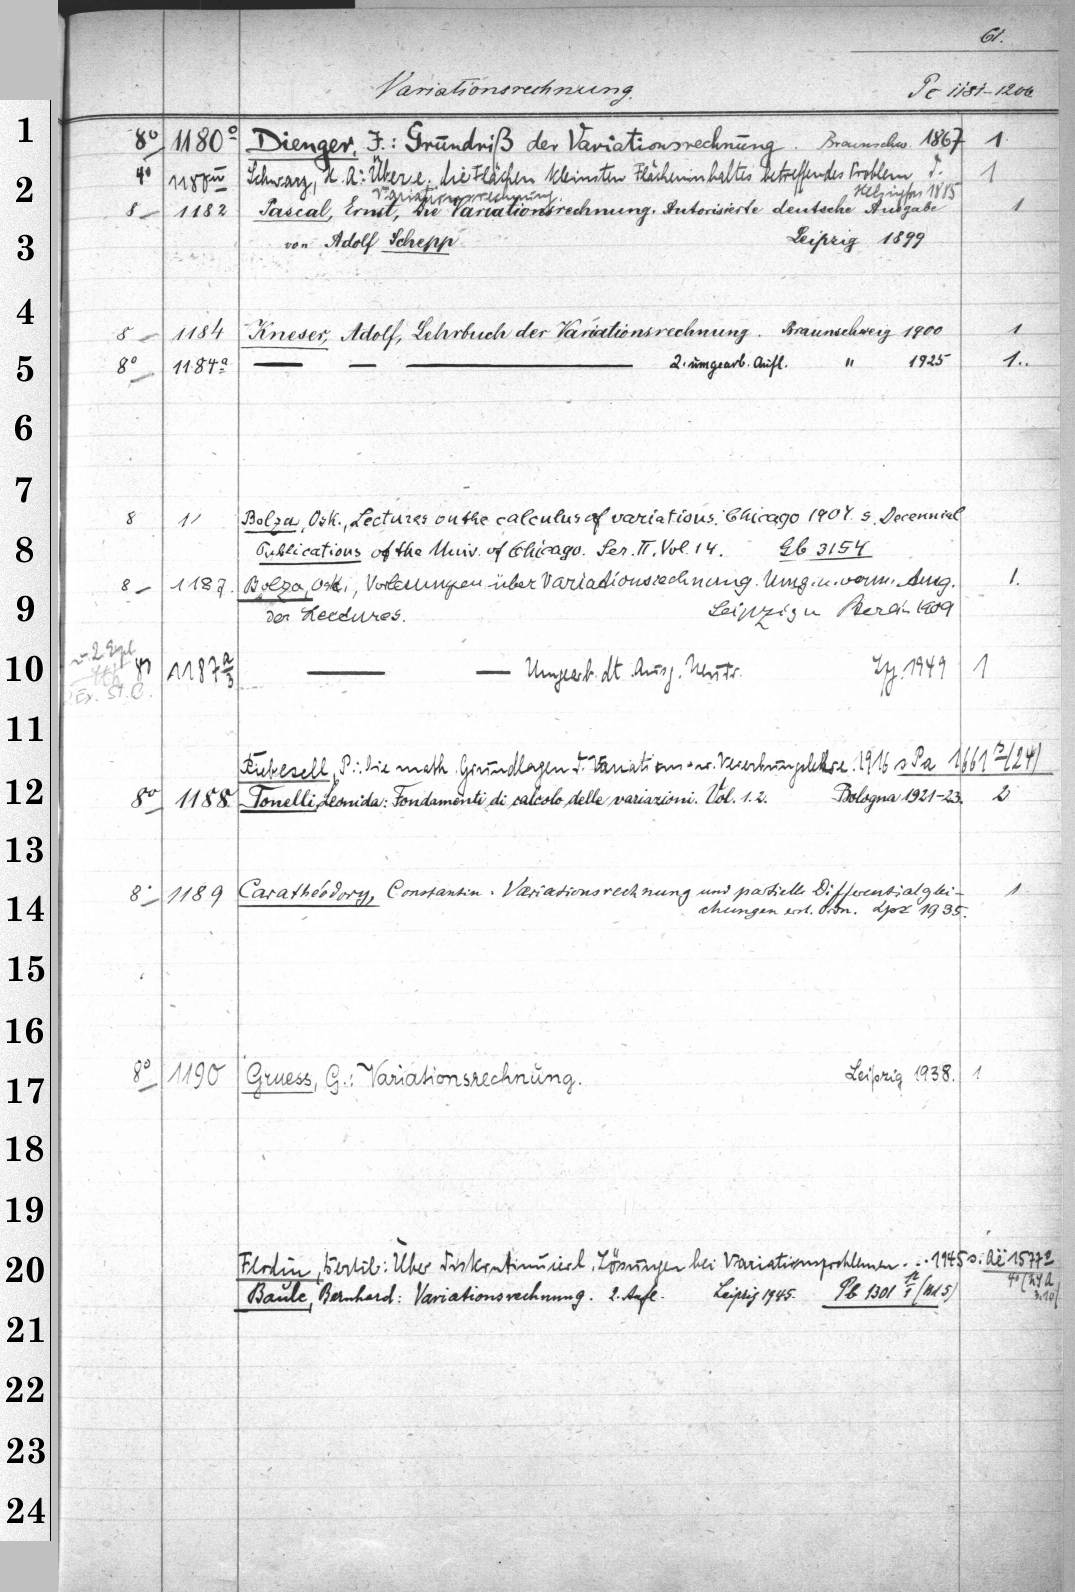 61.
Variationsrechnung. Pc 1181-1200
1 8° 1180° Dienger, J.: Grundriß der Variationsrechnung. Braunschw. 1867 1
2 4° 1180 Schwarz, H. A.: Über e. die Flächen kleinsten Flächeninhaltes betreffendes Problem d. 1
Variationsrechnung. Helsingfors 1885
8 1182 Pascal, Ernst, Die Variationsrechnung. Autorisierte deutsche Ausgabe 1
3 von Adolf Schepp Leipzig 1899
4 8 1184 Kneser, Adolf, Lehrbuch der Variationsrechnung. Braunschweig 1900 1
5 8° 1184a — — — 2. umgearb. Aufl. " 1925 1..
6
7
8 Bolza, Osk., Lectures on the calculus of variations. Chicago 1904. s. Decennial
8 Publications of the Univ. of Chicago. Ser. II, Vol. 14. Gb 3154
8 1187. Bolza, Osk., Vorlesungen über Variationsrechnung. Umg. u. verm. Ausg. 1.
9 der Lectures. Leipzig u Berlin 1909
2 Expl.
10 1187 a/3 — — Umgearb. dt. Ausg. Neudr. Lpz. 1949 1
Ex. St. C.
11
Riebesell, P.: Die math. Grundlagen d. Variations- u. Vererbungslehre. 1916 s Pa 1661 (24)
12 8° 1188 Tonelli, Leonida: Fondamenti di calcolo delle variazioni. Vol. 1. 2. Bologna 1921-23. 2
13
8° 1189 Carathéodory, Constantin. Variationsrechnung und partielle Differentialglei- 1
14 chungen erst. Ordn. Lpz 1935.
15
16
8° 1190 Gruess, G.: Variationsrechnung. Leipzig 1938. 1
17
18
19
20 Flodin, Bertil: Über diskontinuierl. Lösungen bei Variationsproblemen... 1945 s. Aë 1577
Baule, Bernhard: Variationsrechnung. 2. Aufl. Leipzig 1945. Pb 1301 (Bd 5)
21
22
23
24